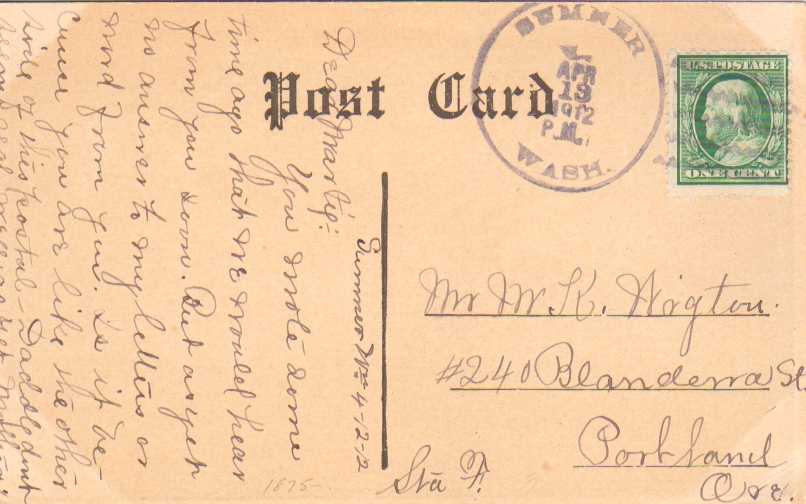 Post Card
SUMNER
APR
13
1912
P.M.
WASH.
U.S. POSTAGE
ONE CENT
Sumner Wn 4-12-12
Dear
You wrote some
time ago that we would hear
from you soon. But as yet
no answer to my letters or
word from you. Is it be-
cause you are like the other
side of this postal-
Mr W. K. Wigton.
#240 Blandena St.
Portland
Ore.
Sta F.
1875-